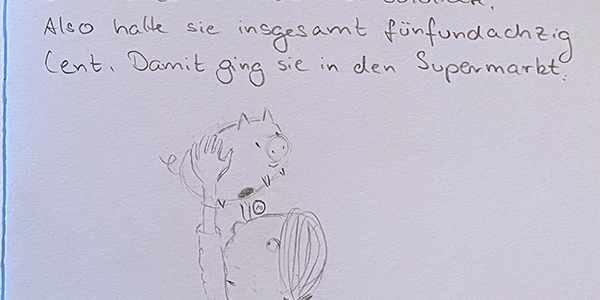 Also hatte sie insgesamt fünfundachzig
Cent. Damit ging sie in den Supermarkt.
10